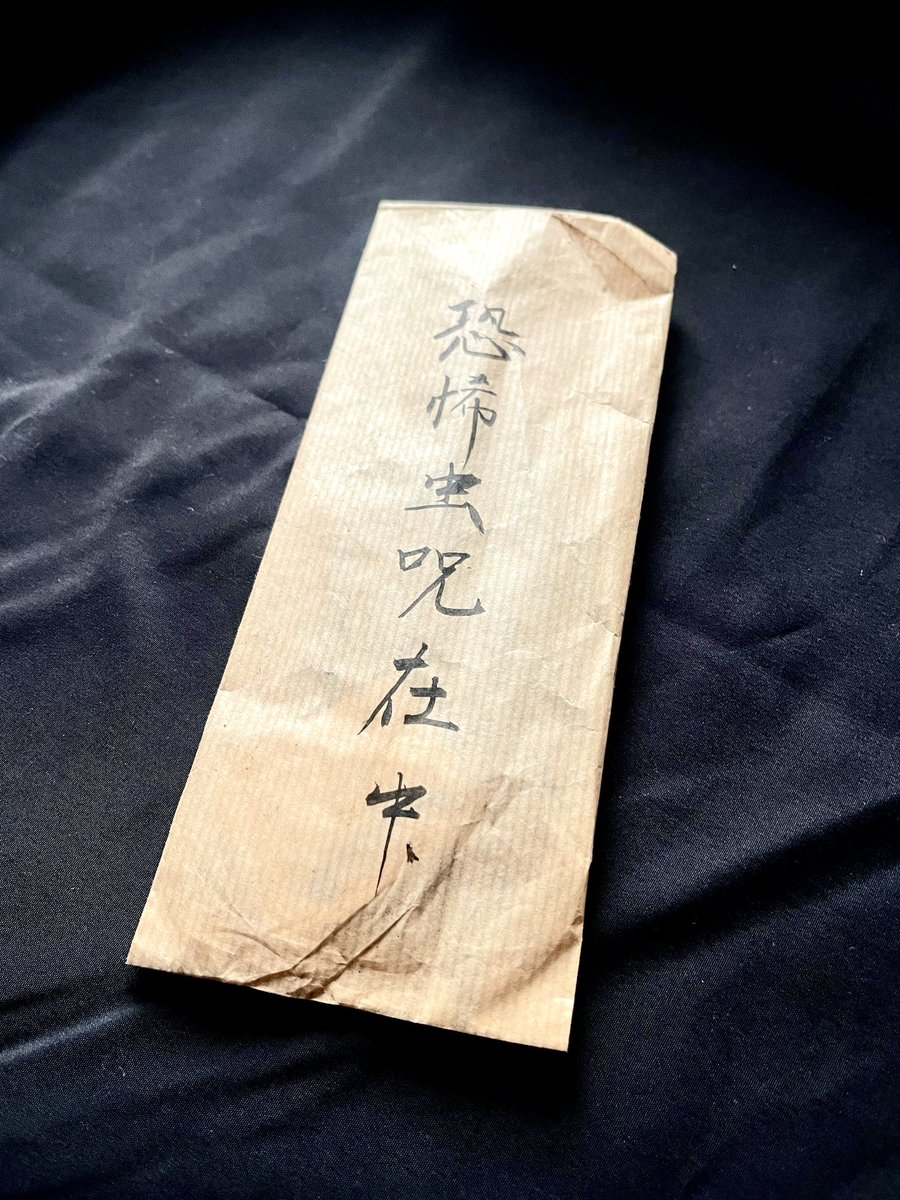 恐怖虫呪在中